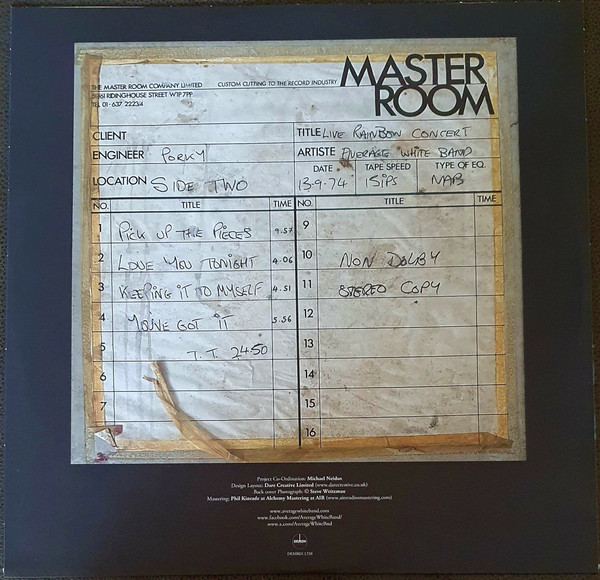 THE MASTER ROOM COMPANY LIMITED
59/61 RIDINGHOUSE STREET W1P 7PP
TEL 01-637 2223/4
CUSTOM CUTTING TO THE RECORD INDUSTRY
MASTER
ROOM
CLIENT
TITLE LIVE RAINBOW CONCERT
ENGINEER PORKY
ARTISTE AVERAGE WHITE BAND
LOCATION SIDE TWO
DATE TAPE SPEED TYPE OF EQ.
13-9-74 15IPS NAB
NO. TITLE TIME NO. TITLE TIME
1 PICK UP THE PIECES 9.57 9
2 LOVE YOU TONIGHT 4.06 10 NON DOLBY
3 KEEPING IT TO MYSELF 4.51 11 STEREO COPY
4 YOU'VE GOT IT 5.56 12
5 T.T. 24.50 13
6 14
7 15
16
Project Co-Ordination: Michael Neidus
Design Layout: Dare Creative Limited (www.darecreative.co.uk)
Back cover Photograph: © Steve Weitzman
Mastering: Phil Kinrade at Alchemy Mastering at AIR (www.airstudiosmastering.com)
www.averagewhiteband.com
www.facebook.com/AverageWhiteBand/
www.x.com/AverageWhiteBnd
DEMON
DEMREC1238